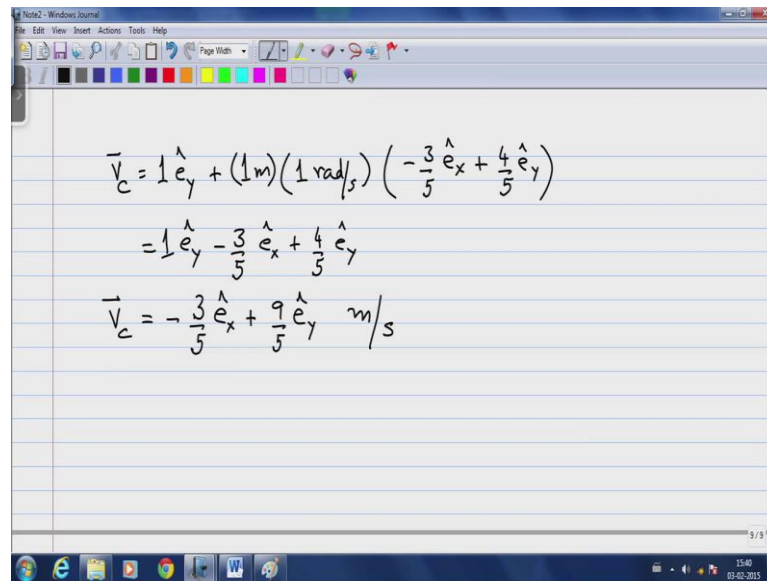 Note2 - Windows Journal
File Edit View Insert Actions Tools Help
Page Width
V̄_c = 1 ê_y + (1m)(1 rad/s)(-3/5 ê_x + 4/5 ê_y)
= 1 ê_y - 3/5 ê_x + 4/5 ê_y
V̄_c = - 3/5 ê_x + 9/5 ê_y m/s
9/9
15:40
03-02-2015